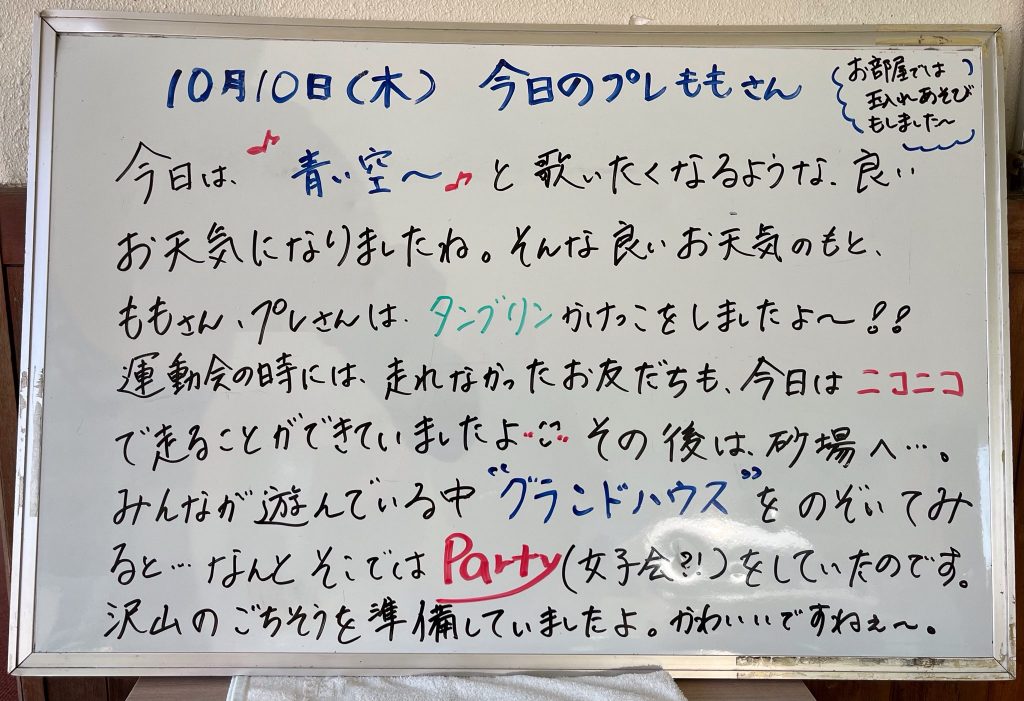 10月10日(木) 今日のプレももさん
お部屋では
玉入れあそび
もしました〜
今日は、♪青い空〜♪と歌いたくなるような、良い
お天気になりましたね。そんな良いお天気のもと、
ももさん、プレさんは、タンブリンかけっこをしましたよ〜!!
運動会の時には、走れなかったお友だちも、今日はニコニコ
で走ることができていましたよ その後は、砂場へ…。
みんなが遊んでいる中“グランドハウス”をのぞいてみ
ると…なんとそこではParty(女子会?!)をしていたのです。
沢山のごちそうを準備していましたよ。かわいいですねぇ〜。